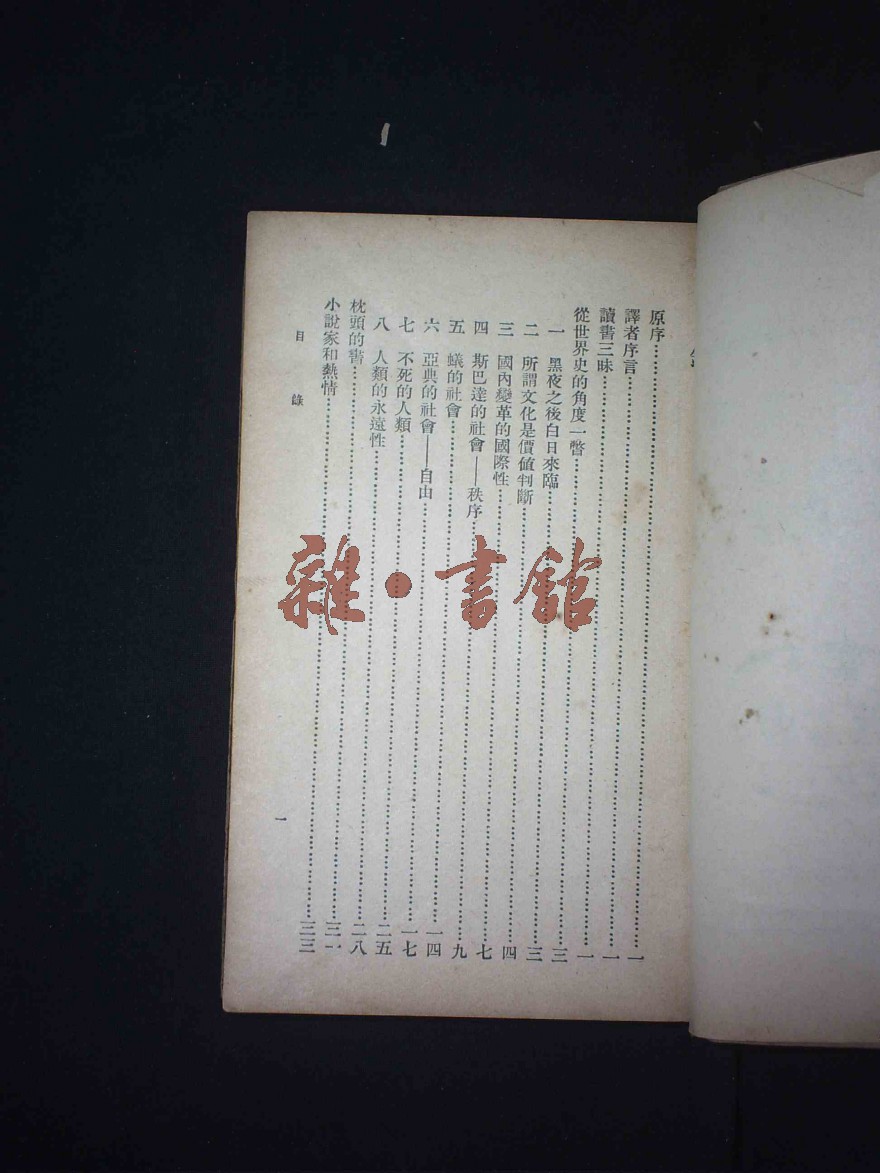 原序……一
譯者序言……一
讀書三昧……一
從世界史的角度一瞥……三
一 黑夜之後白日來臨……三
二 所謂文化是價値判斷……四
三 國內變革的國際性……七
四 斯巴達的社會——秩序……九
五 蟻的社會……一四
六 亞典的社會——自由……一七
七 不死的人類……二五
八 人類的永遠性……二八
枕頭的書……三一
小說家和熱情……三三
目錄
一
雜·書館